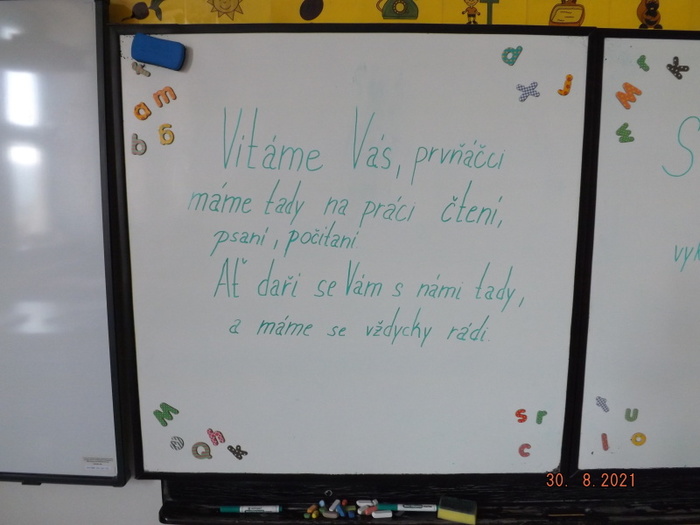 Vítáme Vás, prvňáčci
máme tady na práci čtení,
psaní, počítaní
Ať daří se Vám s námi tady,
a máme se vždycky rádi.
S
vyk
30. 8. 2021